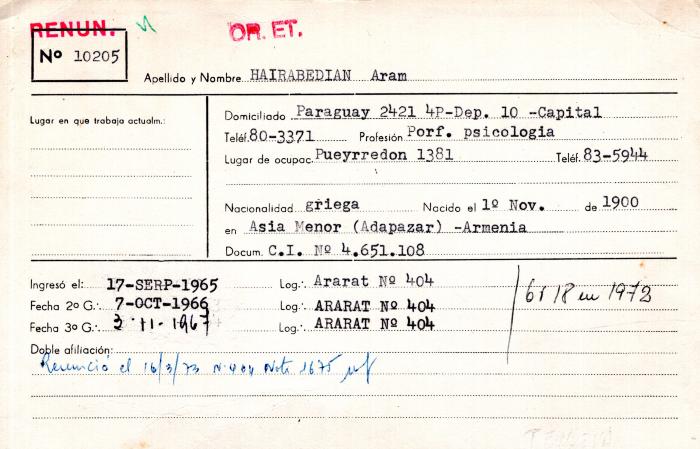 RENUN.
OR. ET.
Nº 10205
Apellido y Nombre HAIRABEDIAN Aram
Lugar en que trabaja actualm.:
Domiciliado Paraguay 2421 4P-Dep. 10 -Capital
Teléf. 80-3371 Profesión Porf. psicologia
Lugar de ocupac. Pueyrredon 1381 Teléf. 83-5944
Nacionalidad griega Nacido el 1º Nov. de 1900
en Asia Menor (Adapazar) -Armenia
Docum. C.I. Nº 4.651.108
Ingresó el: 17-SERP-1965 Log∴ Ararat Nº 404
Fecha 2º G∴ 7-OCT-1966 Log∴ ARARAT Nº 404
Fecha 3º G∴ 3-11-1967 Log∴ ARARAT Nº 404
6º 18 en 1972
Doble afiliación:
Renunció el 16/3/73 Nº 404 Nota 1675